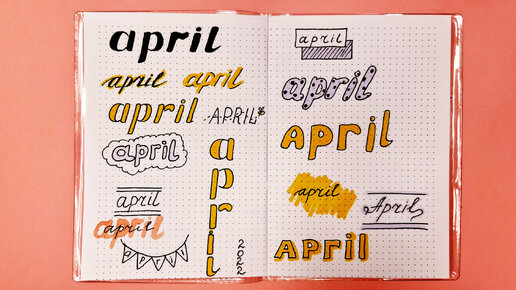 april
april april
april APRIL
april
april
april
april
april
2022
april
april
april
april
April
APRIL